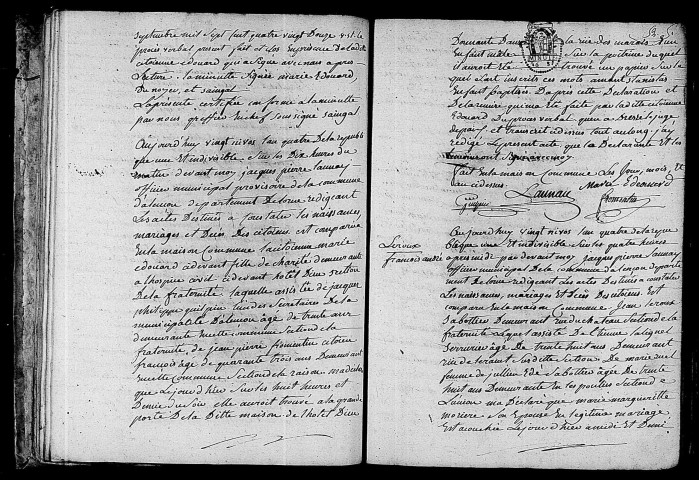 septembre mil sept cent quatre vingt douze est le
procès verbal present fait et clos en presence de ladite
citoïenne edouard qui a signé avec nous a près
lecture. la minutte signée marie Edouard,
Du noyer, et saingal
La presente certifiée conforme a la minutte
par nous greffier en chef soussigné saingal
Aujourd'huy vingt nivos l'an quatre de la republi
que une et indivisible sur les dix heures du
matin devant moy jacques pierre Launay
officier municipal provisoire de la commune
d'alencon departement de lorne redigeant
les actes destinés a constater les naissances,
mariages et Décès des citoiens est comparue
en la maison commune la citoienne marie
edouard cidevant fille de charité demeurante
a l'hospice civil cidevant hotel Dieu section
De la fraternité laquelle assistée de jacque
philippe guilpin l'un des secretaires de la
municipalité D'alencon agé de trente ans
demeurante en cette commune section de la
fraternité, de jean pierre fromentin citoien
françois agé de quarante trois ans Demeurant
en cette commune section de la raison m'a declaré
que Le jour d'hier sur les huit heures et
Demie du soir elle auroit trouvé a la grande
porte De la Ditte maison de l'hotel Dieu
Donnante Dans la rüe des marais Un
Enfant mâle sur la poitrine duquel
il auroit Eté trouvé un papier sur le
quel Etait inscrits ces mots armant Stanislas
Enfant Baptisé. D'après cette Declaration et
De la remise qui m'a eté faite par la ditte citoienne
Edouard Du procès verbal qu'en a Dressé le juge
de paix et transcrit cidessus tout au long, j'ai
redigé Le present acte que la Declarante et les
temoins ont signé avec moy
fait en la maison commune Les jour, mois, et
an cidessus Marie Edouard
Launay
Guilpin fromentin
Leroux
françois andré
Aujourd'huy vingt nivos l'an quatre de la repu
blique une et indivisible sur les quatre heures
après midi par devant moy Jacques pierre Launay
officier municipal De la commune d'alencon depart
ment De lorne redigeant les actes Destinés a constater
Les naissances, mariages et Décès des citoiens. Est
comparu en la maison commune Jean Leroux
Sabottier Demeurant rue du chateau section de la
fraternité Lequel assisté De Etienne
Serrurier âgé De trente huit ans Demeurant
Section. De marie
femme de julien sabottier âgée De trente
huit ans Demeurante section
m'a Declaré que marie margueritte
moriere son Epouse En legitime mariage
Est accouchée Le jour d'hier a midi Et Demi